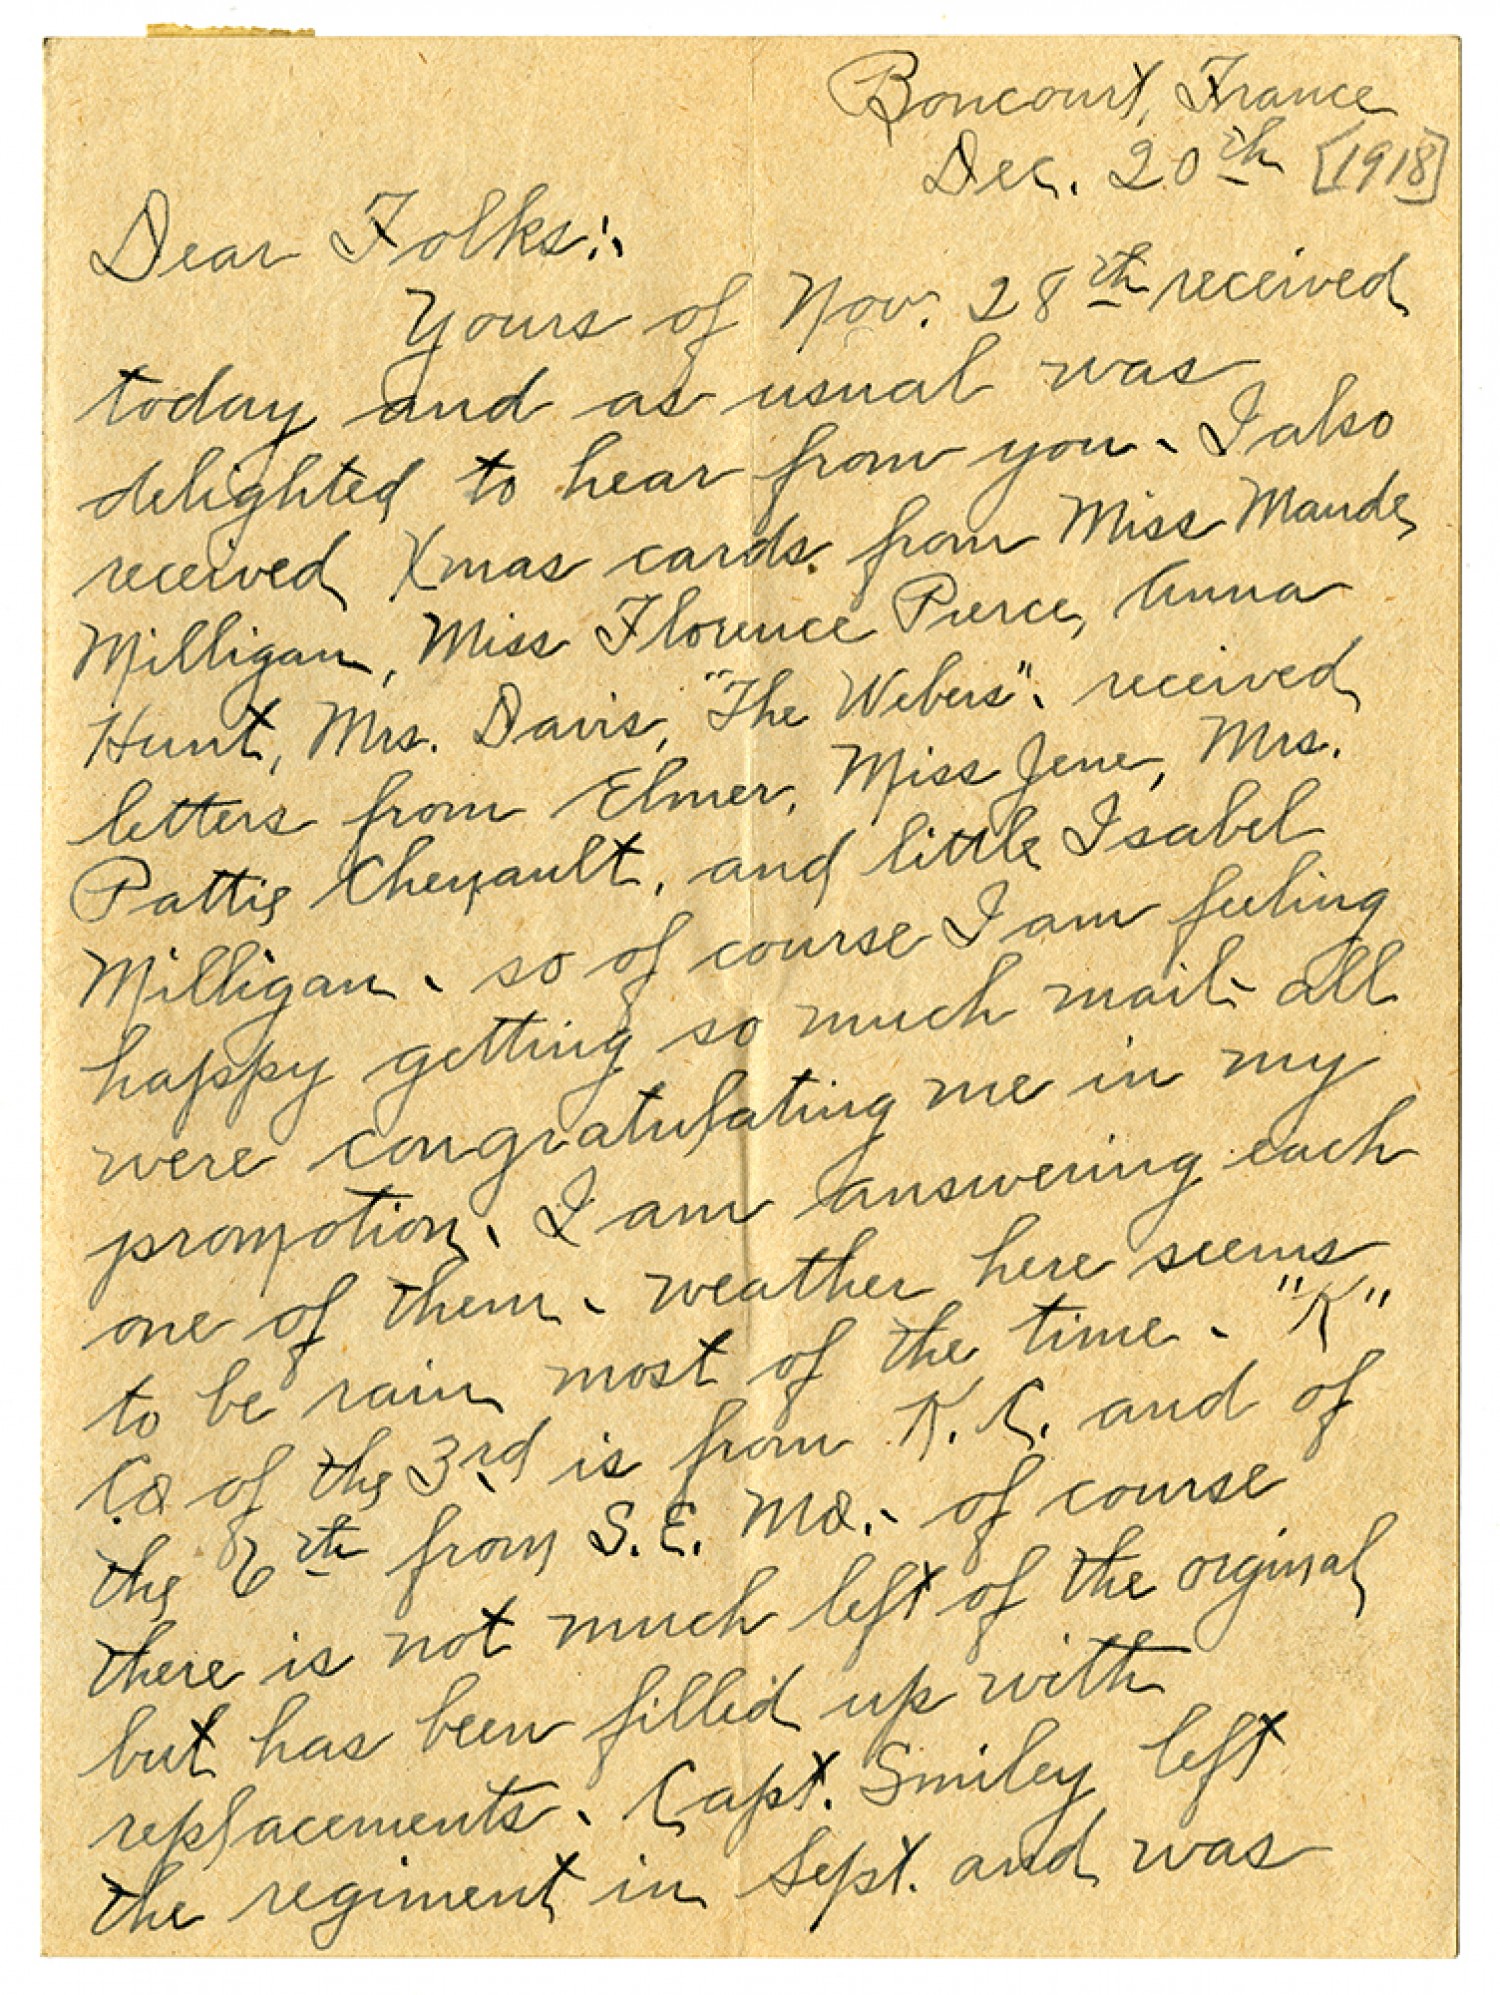 Boncourt, France
Dec. 20th [1918]
Dear Folks:
Yours of Nov. 28th received
today and as usual was
delighted to hear from you. I also
received Xmas cards. from Miss Maude
Milligan, Miss Florence Pierce, Anna
Hunt, Mrs. Davis, "The Webers". received
letters from Elmer, Miss Jene, Mrs.
Pattie Chenault, and little Isabel
Milligan. so of course I am feeling
happy getting so much mail. all
were congratulating me in my
promotion. I am answering each
one of them. weather here seems
to be rain most of the time. "K"
Co of the 3rd is from K.C. and of
the 6th from S.E. Mo. of course
there is not much left of the orginal
but has been filled up with
replacements. Capt. Smiley left
the regiment in Sept. and was